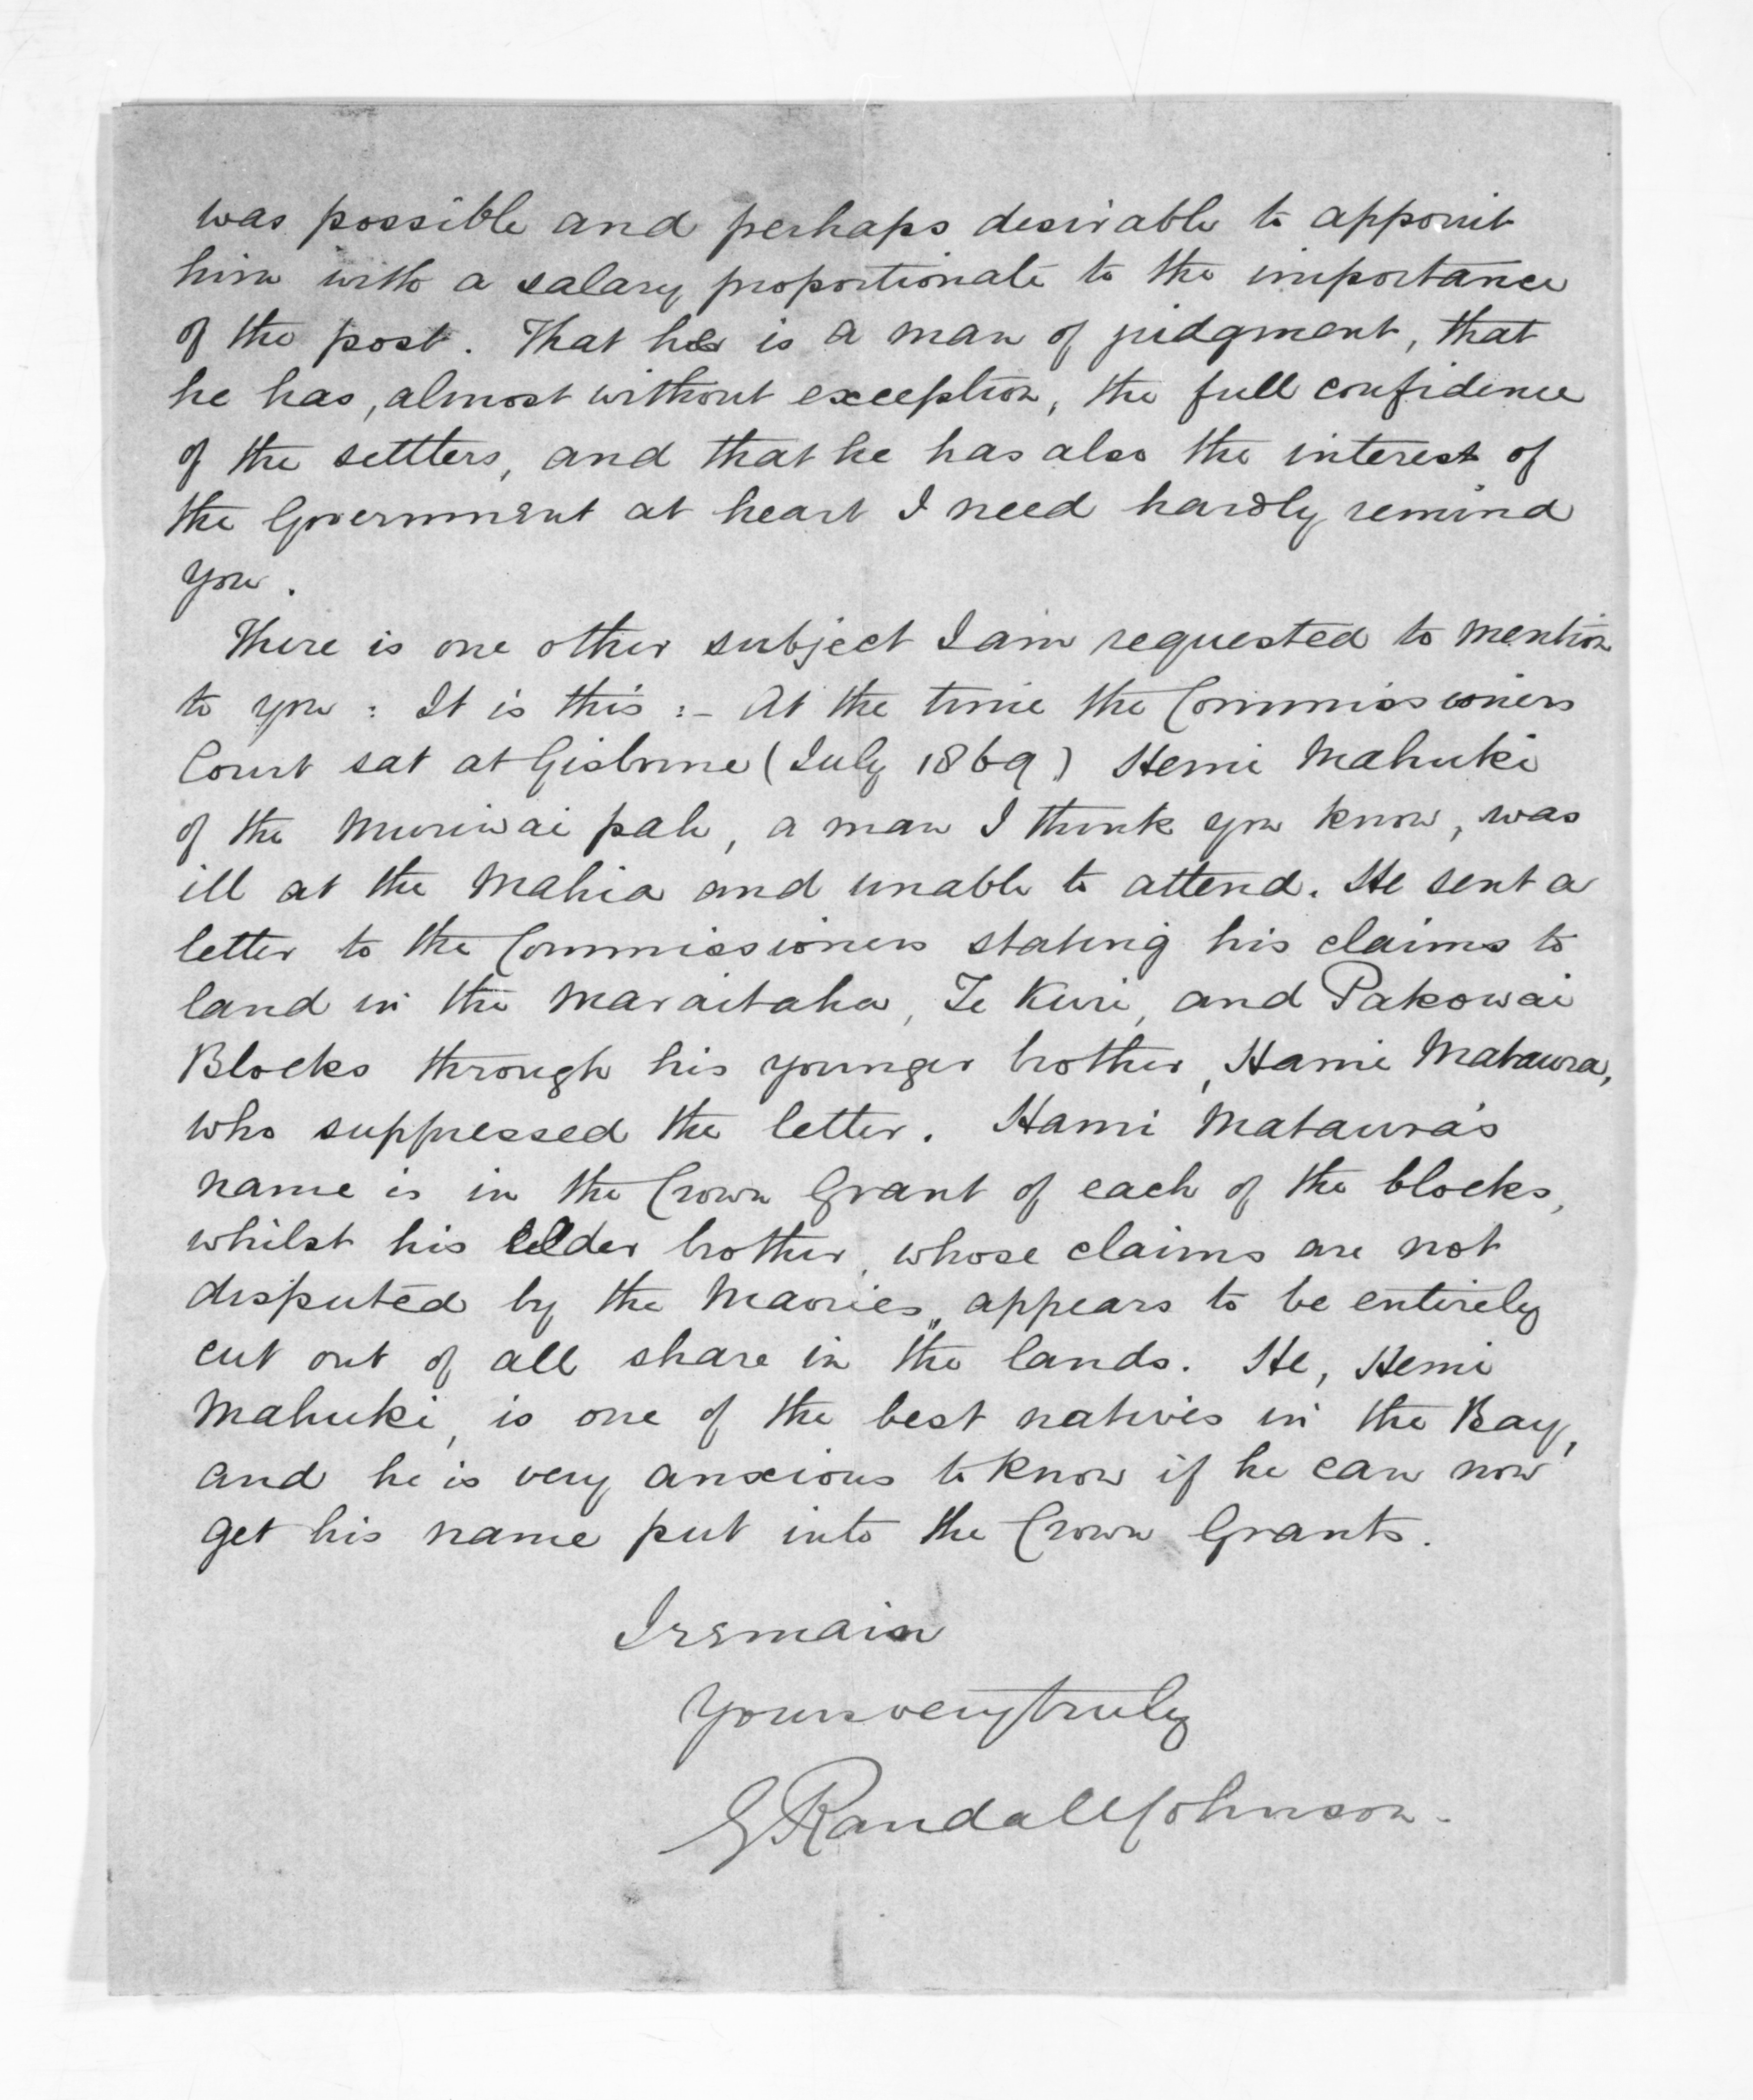 was possible and perhaps desirable to appoint
him with a salary proportionate to the importance
of the post. That he is a man of judgment, that
he has, almost without exception, the full confidence
of the settlers, and that he has also the interest of
the Government at heart I need hardly remind
you.
There is one other subject I am requested to mention
to you : It is this :- At the time the Commissioners
Court sat at Gisborne (July 1869) Hemi Mahuki
of the Muriwai pah, a man I think you know, was
ill at the Mahia and unable to attend. He sent a
letter to the Commissioners stating his claims to
land in the Maraitaha, Te Kuri, and Pakowai
Blocks through his younger brother, Hami Mataura,
who suppressed the letter. Hami Mataura's
name is in the Crown Grant of each of the blocks,
whilst his elder brother, whose claims are not
disputed by the Maories, appears to be entirely
cut out of all share in the lands. He, Hemi
Mahuki, is one of the best natives in the Bay,
and he is very anxious to know if he can now
get his name put into the Crown Grants.
I remain
Yours very truly
G Randall Johnson.